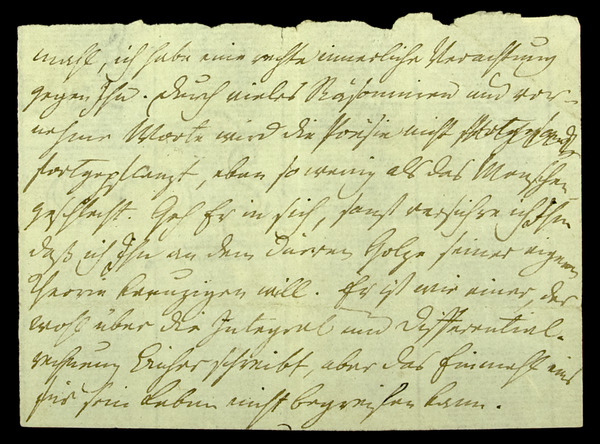 macht, ich habe eine rechte innerliche Verachtung
gegen Ihn. Durch vieles Räsonniren und vor-
nehme Worte wird die Poësie nicht
fortgepflanzt, eben so wenig als das Menschen
geschlecht. Geh Er in sich, sonst versichre ich Ihn
daß ich Ihn an dem dürren Holze seiner eignen
Verse kreuzigen will. Er ist wie einer, der
wohl über die Integral und Differential-
rechnung Bücher schreibt, aber das Einmahl eins
für sein Leben nicht begreifen kann.